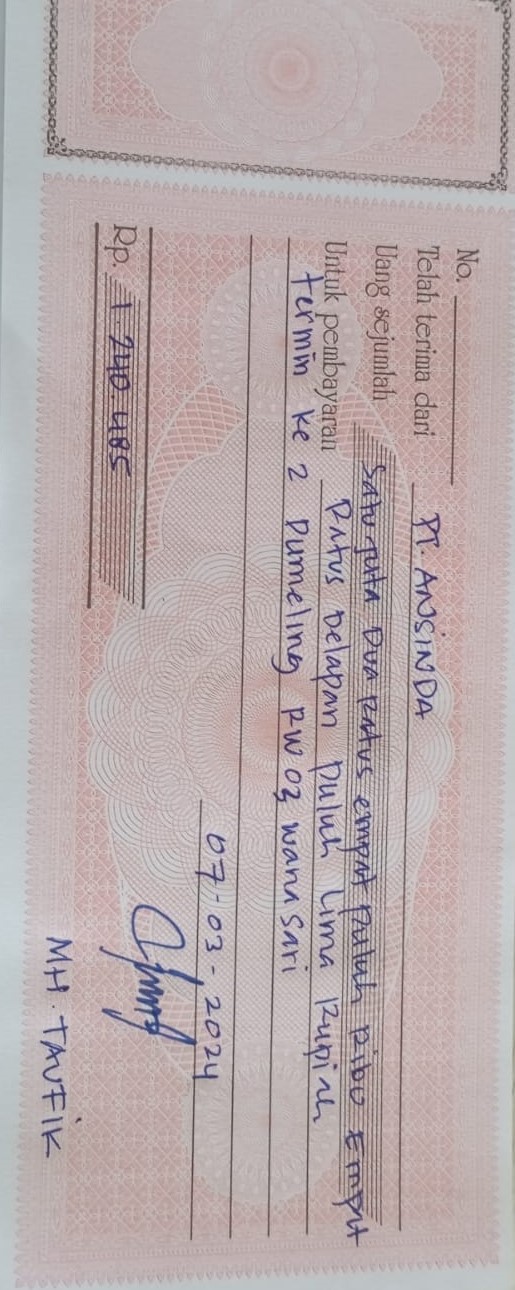 No.
Telah terima dari PT. ANSINDA
Uang sejumlah Satu juta Dua Ratus empat puluh Ribu Empat
Untuk pembayaran Ratus Delapan puluh Lima Rupiah
termin ke 2 Dumeling RW 03 wanasari
07-03-2024
Rp. 1.240.485
MH. TAUFIK